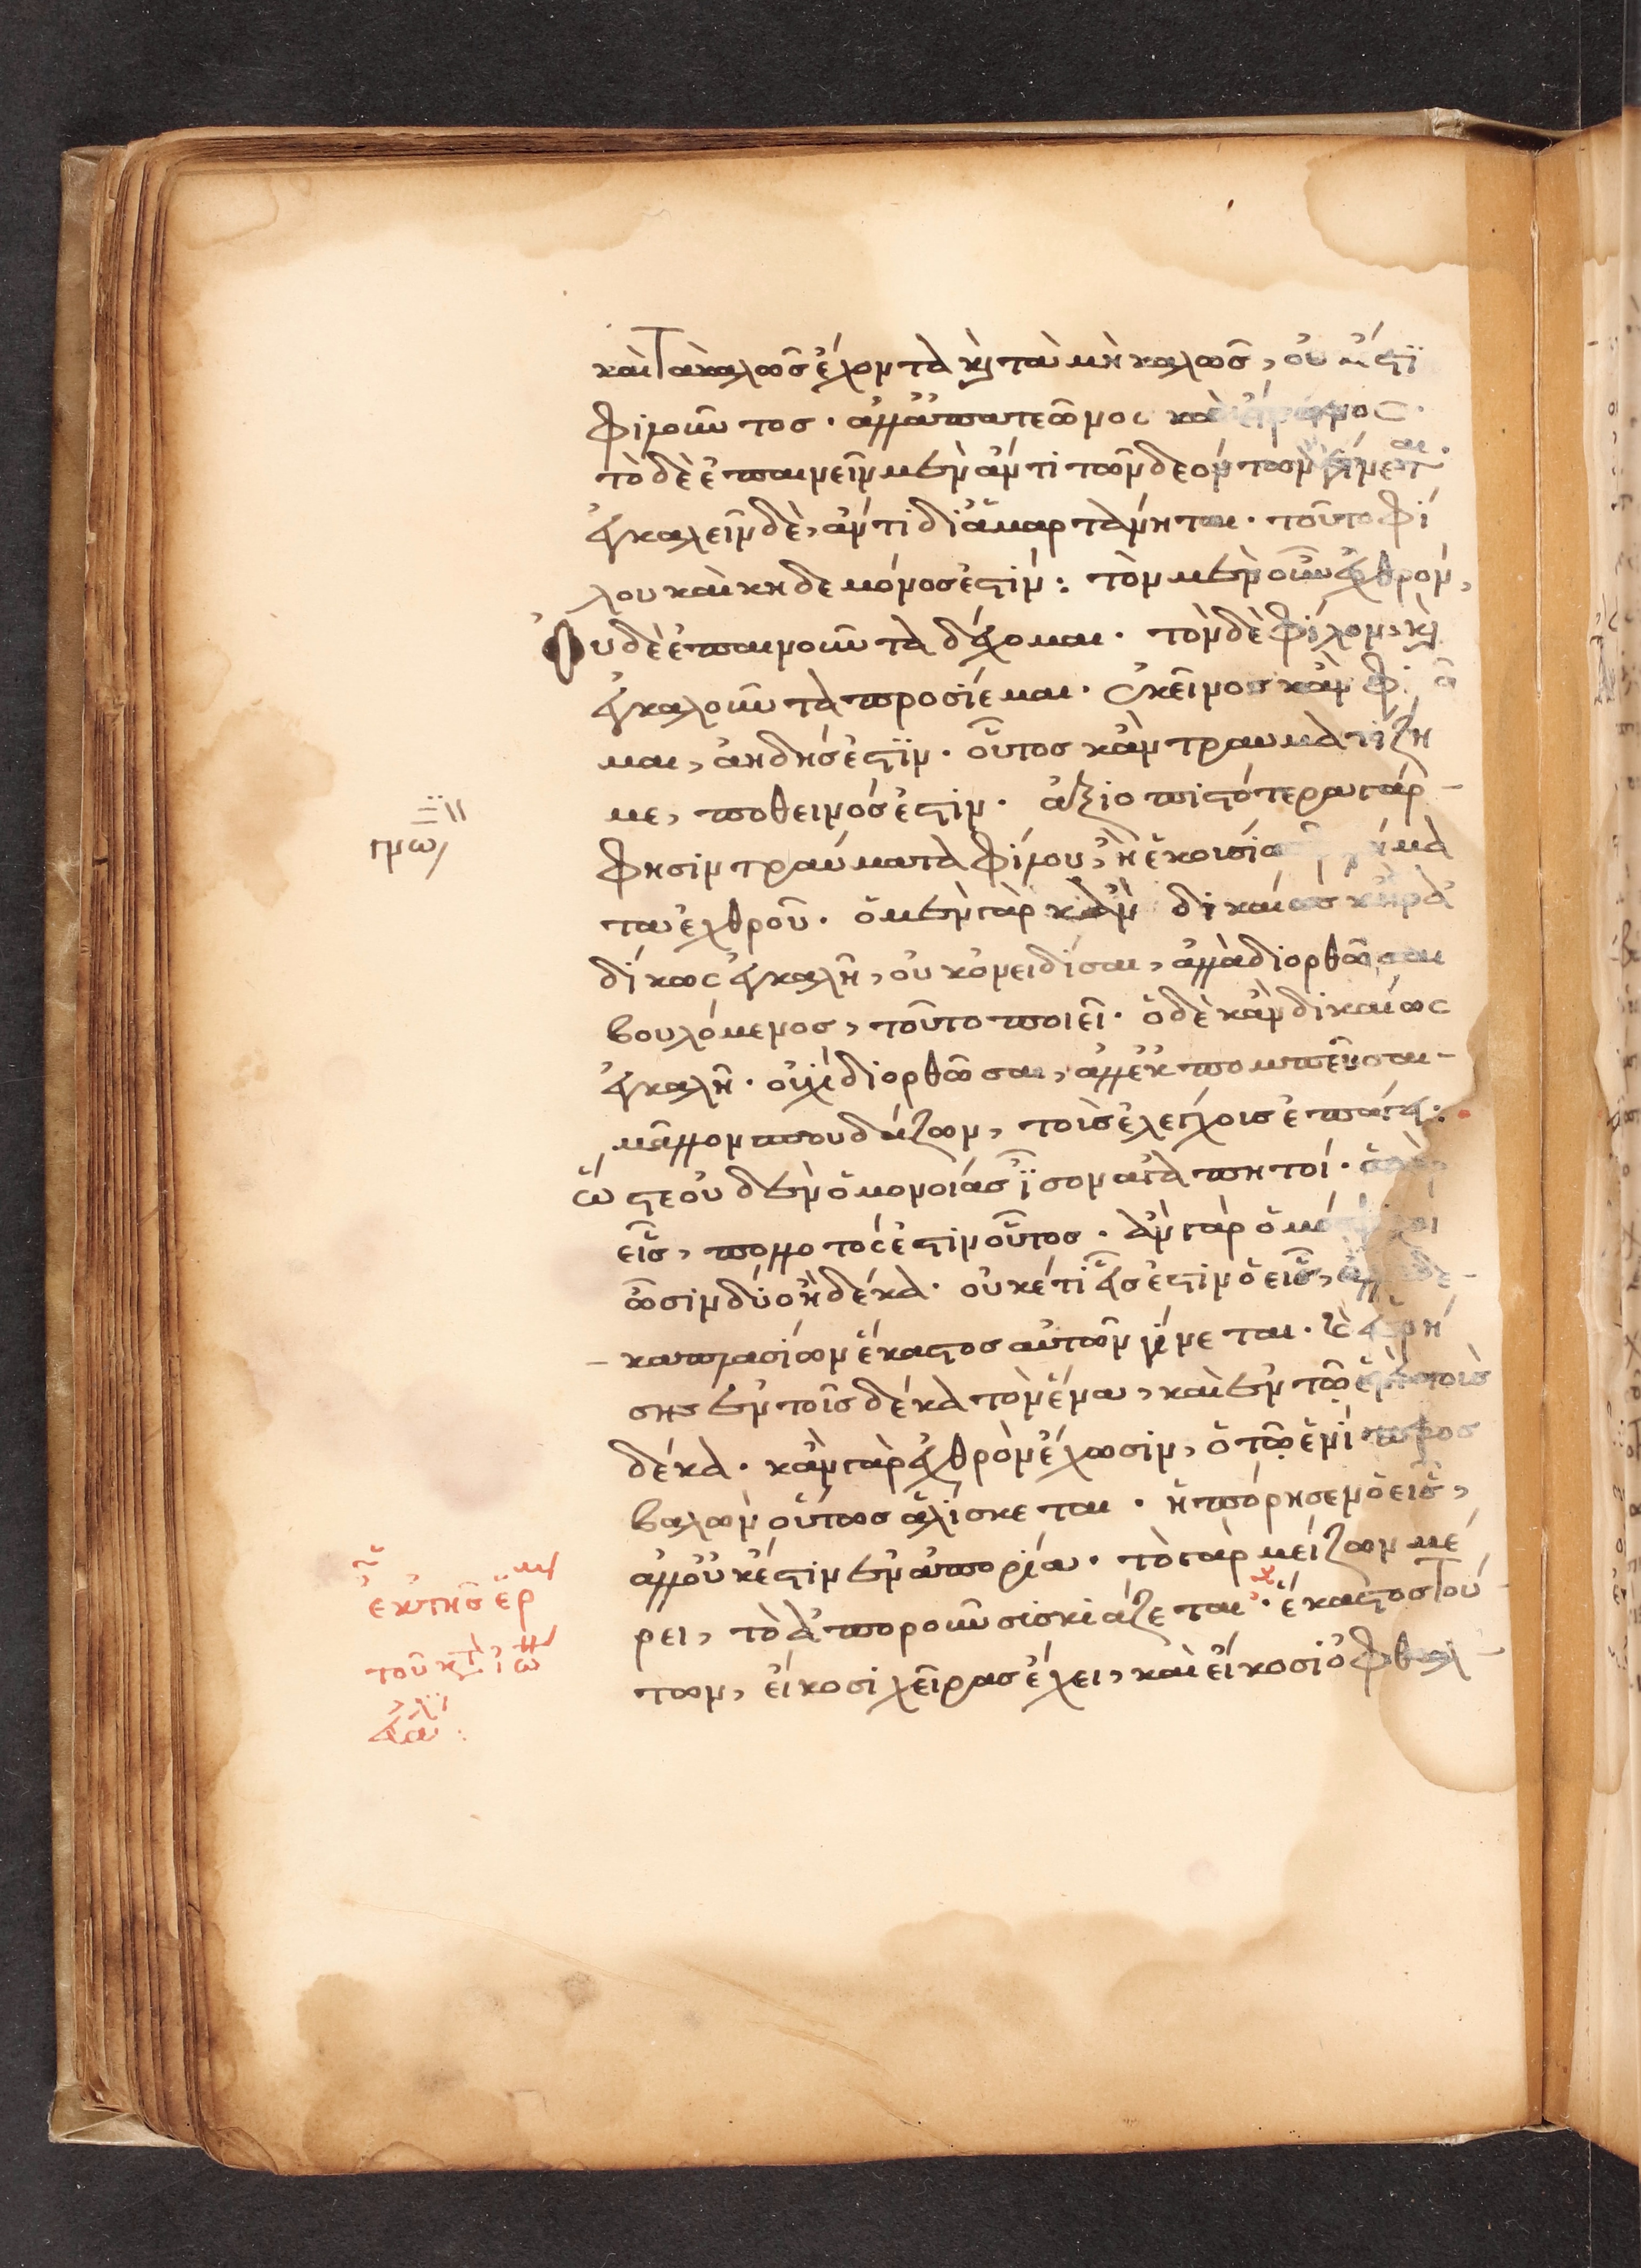 καὶ τὰ καλῶς ἔχοντα κ̀ τὰ μὴ καλῶς, οὐκ ἔστϊ
φιλοῦντος. ἀλλ' ἀπατεῶνος καὶ εἴρωνος.
τὸ δὲ ἐπαινεῖν μὲν ἀντὶ τῶν δεόντων γίνεται.
ἐγκαλεῖν δὲ, ἀντὶ δι ἁμαρτάνηται. τοῦτο φί
λου καὶ κηδεμόνος ἐστίν: τὸν μὲν οὖν ἐχθρὸν,
Οὐδὲ ἐπαινοῦντα δέχομαι. τὸν δὲ φίλον, κ̀
ἐγκαλοῦντα προσίεμαι. ἐκεῖνος κἂν
μαι, ἀηδής ἐστϊν. οὗτος κἂν τραυματίζη
με, ποθεινός ἐστιν. ἀξιοπιστότερα γάρ
γνώ
φησιν τραύματα φίλου, ἢ ἑκούσια
τα ἐχθροῦ. ὁ μὲν γὰρ κἂν δικαίως κἂν ἀ
δίκως ἐγκαλῆ, οὐκ ὀνειδίσαι, ἀλλὰ διορθῶσαι
βουλόμενος, τοῦτο ποιεῖ. ὁ δὲ κἂν δικαίως
ἐγκαλῆ. οὐχὶ διορθῶσαι, ἀλλ' ἐκπομπεῦσαι
μᾶλλον σπουδάζων, τοῖς ἐλέγχοις ἐπάγει:
ὥστε οὐδὲν ὁμονοίας ἴσον ἀγαπητοί.
εἷς, πολλοτός ἐστιν οὗτος. ἂν γὰρ ὁμόψυχοι
ὦσιν δύο ἢ δέκα. οὐκέτι εἷς ἐστιν ὁ εἷς, ἀλλὰ δε
καπλασίων ἕκαστος αὐτῶν γίνεται. κ̀ εὑρή
σης ἐν τοῖς δέκα τὸν ἕνα, καὶ ἐν τῷ ἑνὶ τοὺς
δέκα. κἂν γὰρ ἐχθρὸν ἔχωσιν, ὁ τῷ ἑνὶ προσ
βαλὼν οὕτως ἁλίσκεται. ἠπόρησεν ὁ εἷς,
ἀλλ' οὐκ ἔστιν ἐν ἀπορία. τὸ γὰρ μείζων μέ
ρει, τὸ ἀποροῦν σισκιάζεται. ἕκαστος τού
των, εἴκοσι χεῖρας ἔχει, καὶ εἴκοσι ὀφθαλ
ἐκ τῆς ἑρ
τοῦ κ̀ ἰω